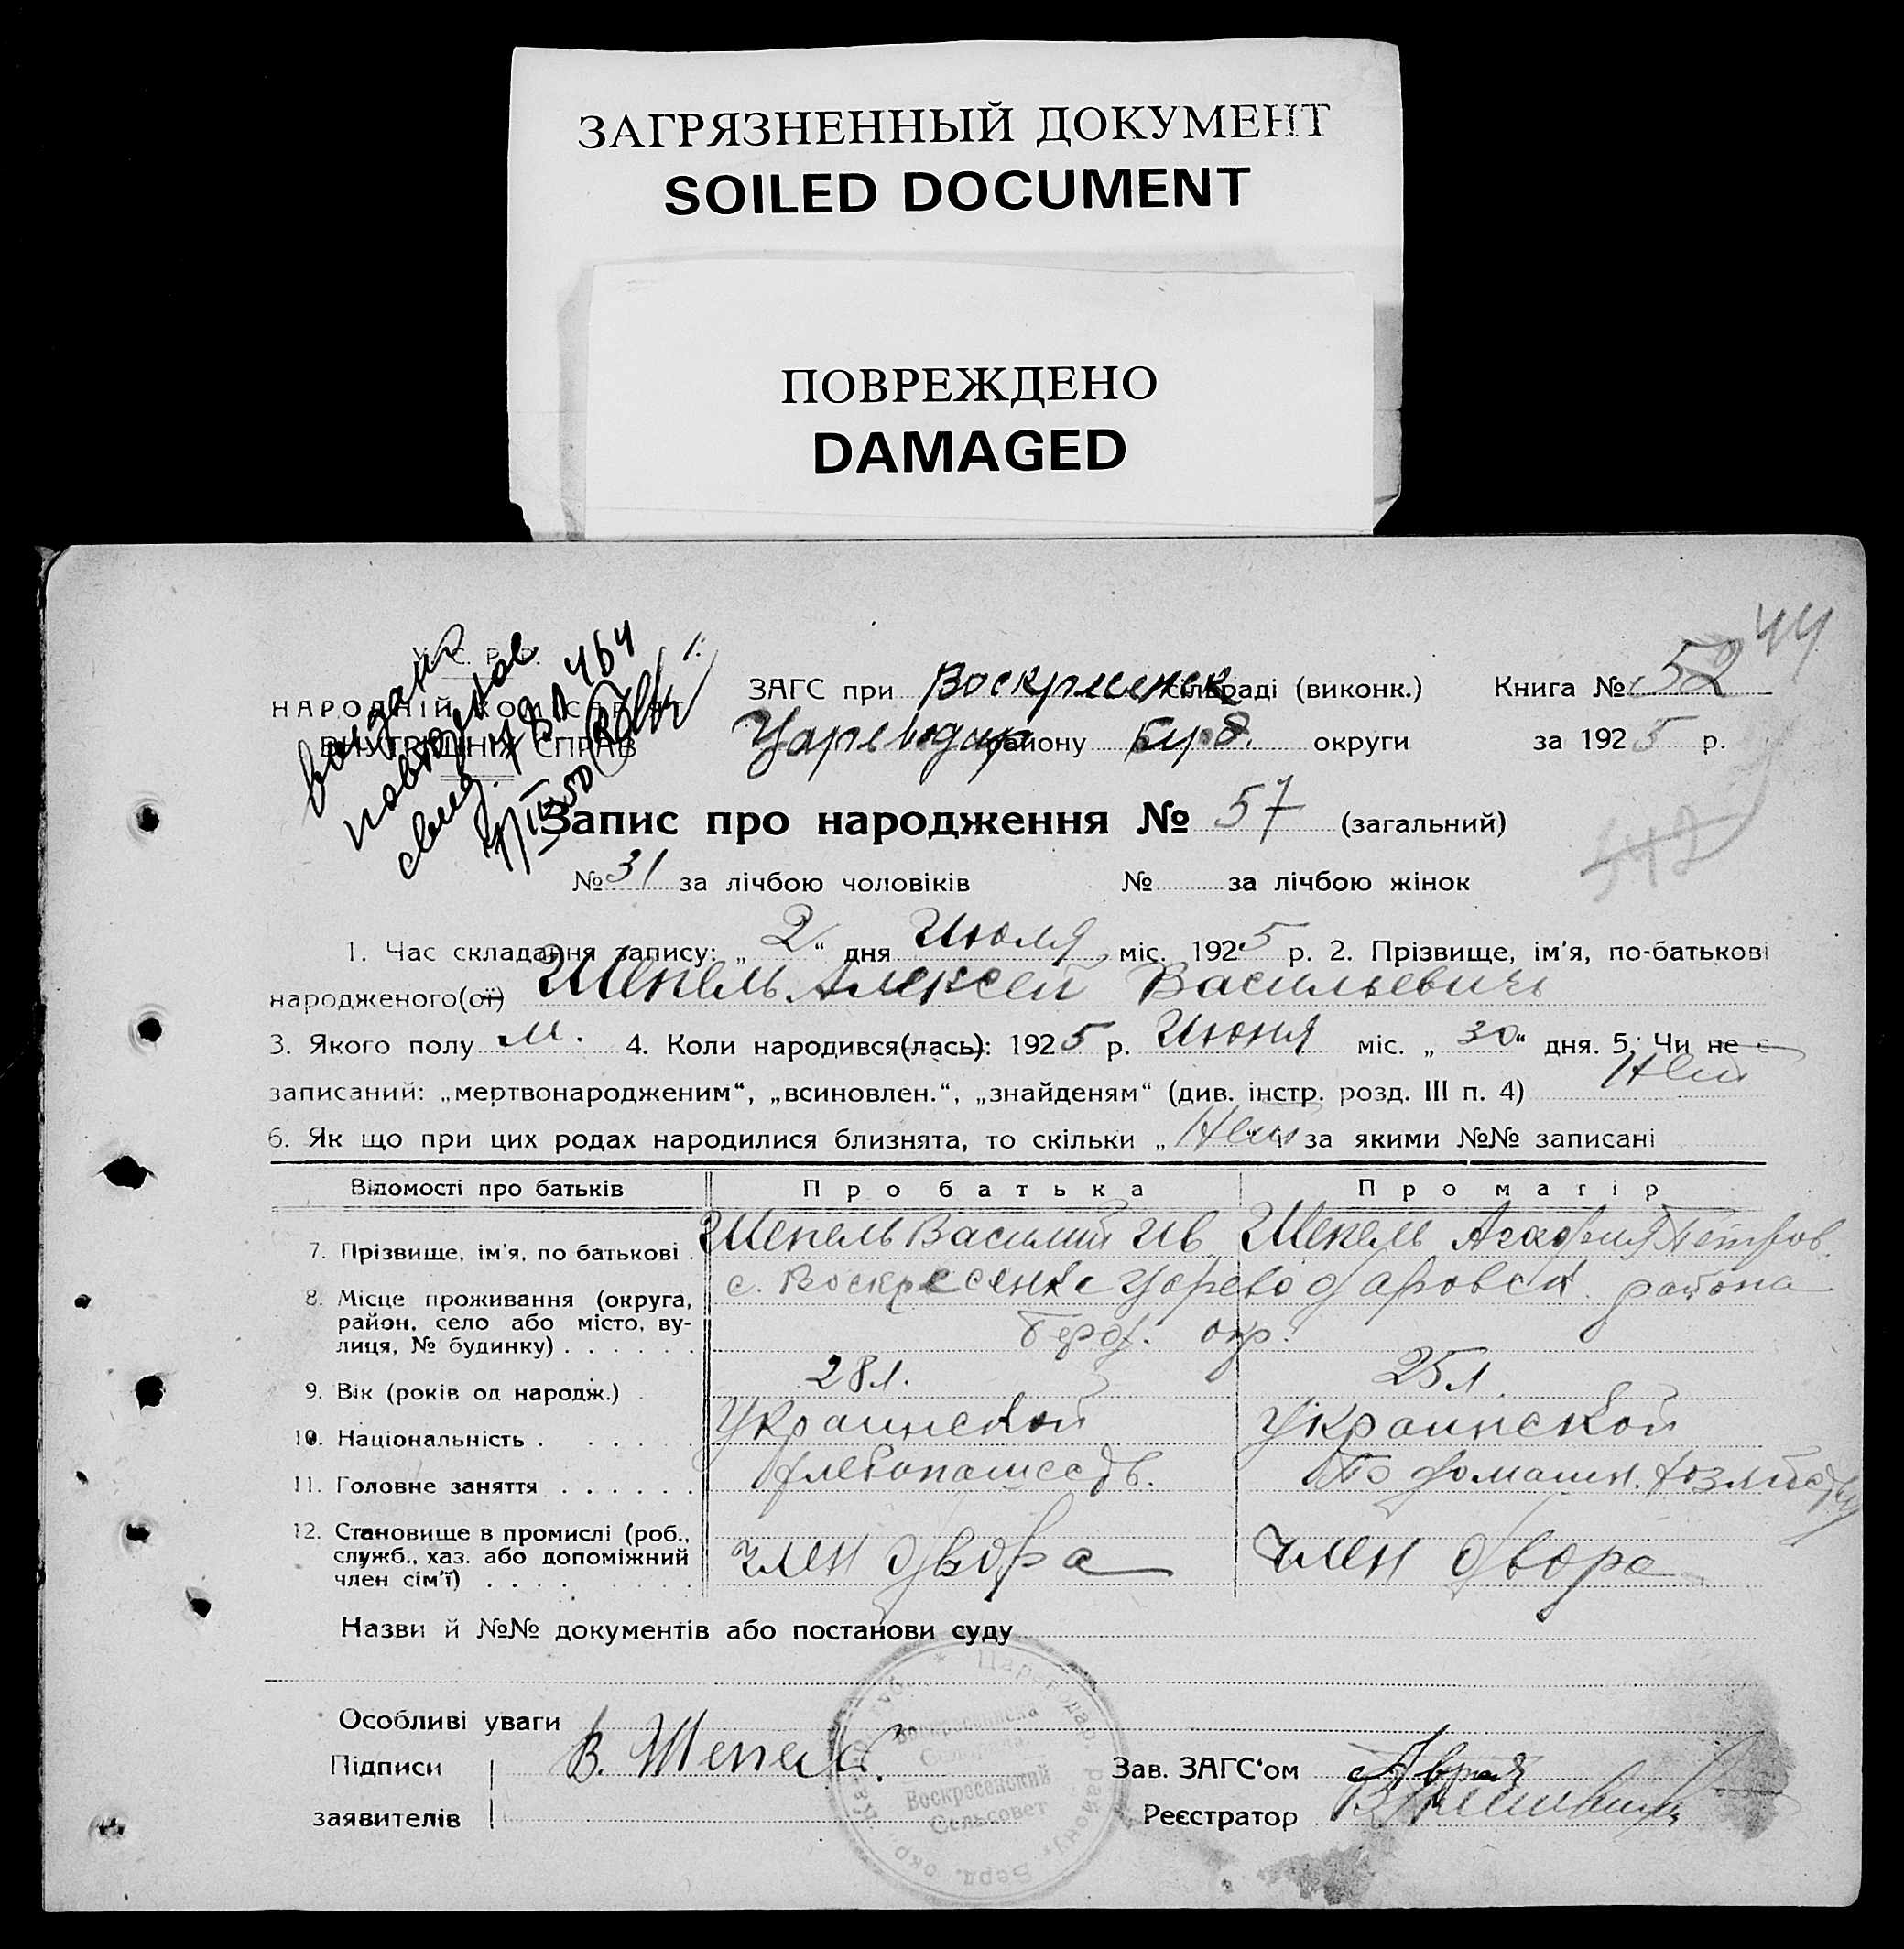 ЗАГРЯЗНЕННЫЙ ДОКУМЕНТ
SOILED DOCUMENT
ПОВРЕЖДЕНО
DAMAGED
44
У. С. Р. Р.
НАРОДНІЙ КОМІСАРІЯТ
ВНУТРІШНІХ СПРАВ
повторное
свид. 464
ЗАГС при Воскресенск сільраді (виконк.) Книга № 52
Цареводар району Берд. округи за 1925 р.
Запис про народження № 57 (загальний)
542
№ 31 за лічбою чоловіків № за лічбою жінок
1. Час складання запису: „ 2 “ дня Июля міс. 1925 р. 2. Прізвище, ім'я, по-батькові
народженого(ої) Шепель Алексей Васильевичь
3. Якого полу м. 4. Коли народився(лась): 1925 р. Июня міс. „ 30 “ дня. 5. Чи не є
записаний: „мертвонародженим“, „всиновлен.“, „знайденям“ (див. інстр. розд. III п. 4) Нет
6. Як що при цих родах народилися близнята, то скільки „ Нет за якими №№ записані
Відомості про батьків Про батька Про матір
7. Прізвище, ім'я, по батькові . Шепель Василий Ив. Шепель Агафия Петров.
8. Місце проживання (округа, район, село або місто, вулиця, № будинку) . . . . . . с. Воскресенке Цареводаровск. района
Берд. окр.
9. Вік (років од народж.) . 28 л. 25 л.
10. Національність . . . . . Украинской Украинской
11. Головне заняття . . . . . . Хлебопашеств. По домашн. хозяйству
12. Становище в промислі (роб., служб., хаз. або допоміжний член сім'ї) . . . . член двора член двора
Назви й №№ документів або постанови суду
Особливі уваги
Підписи В. Шепель. Зав. ЗАГС'ом
заявителів Реєстратор
* Цареводар. району * Берд. окр.
Воскресенська
Сільрада
Воскресенский
Сельсовет